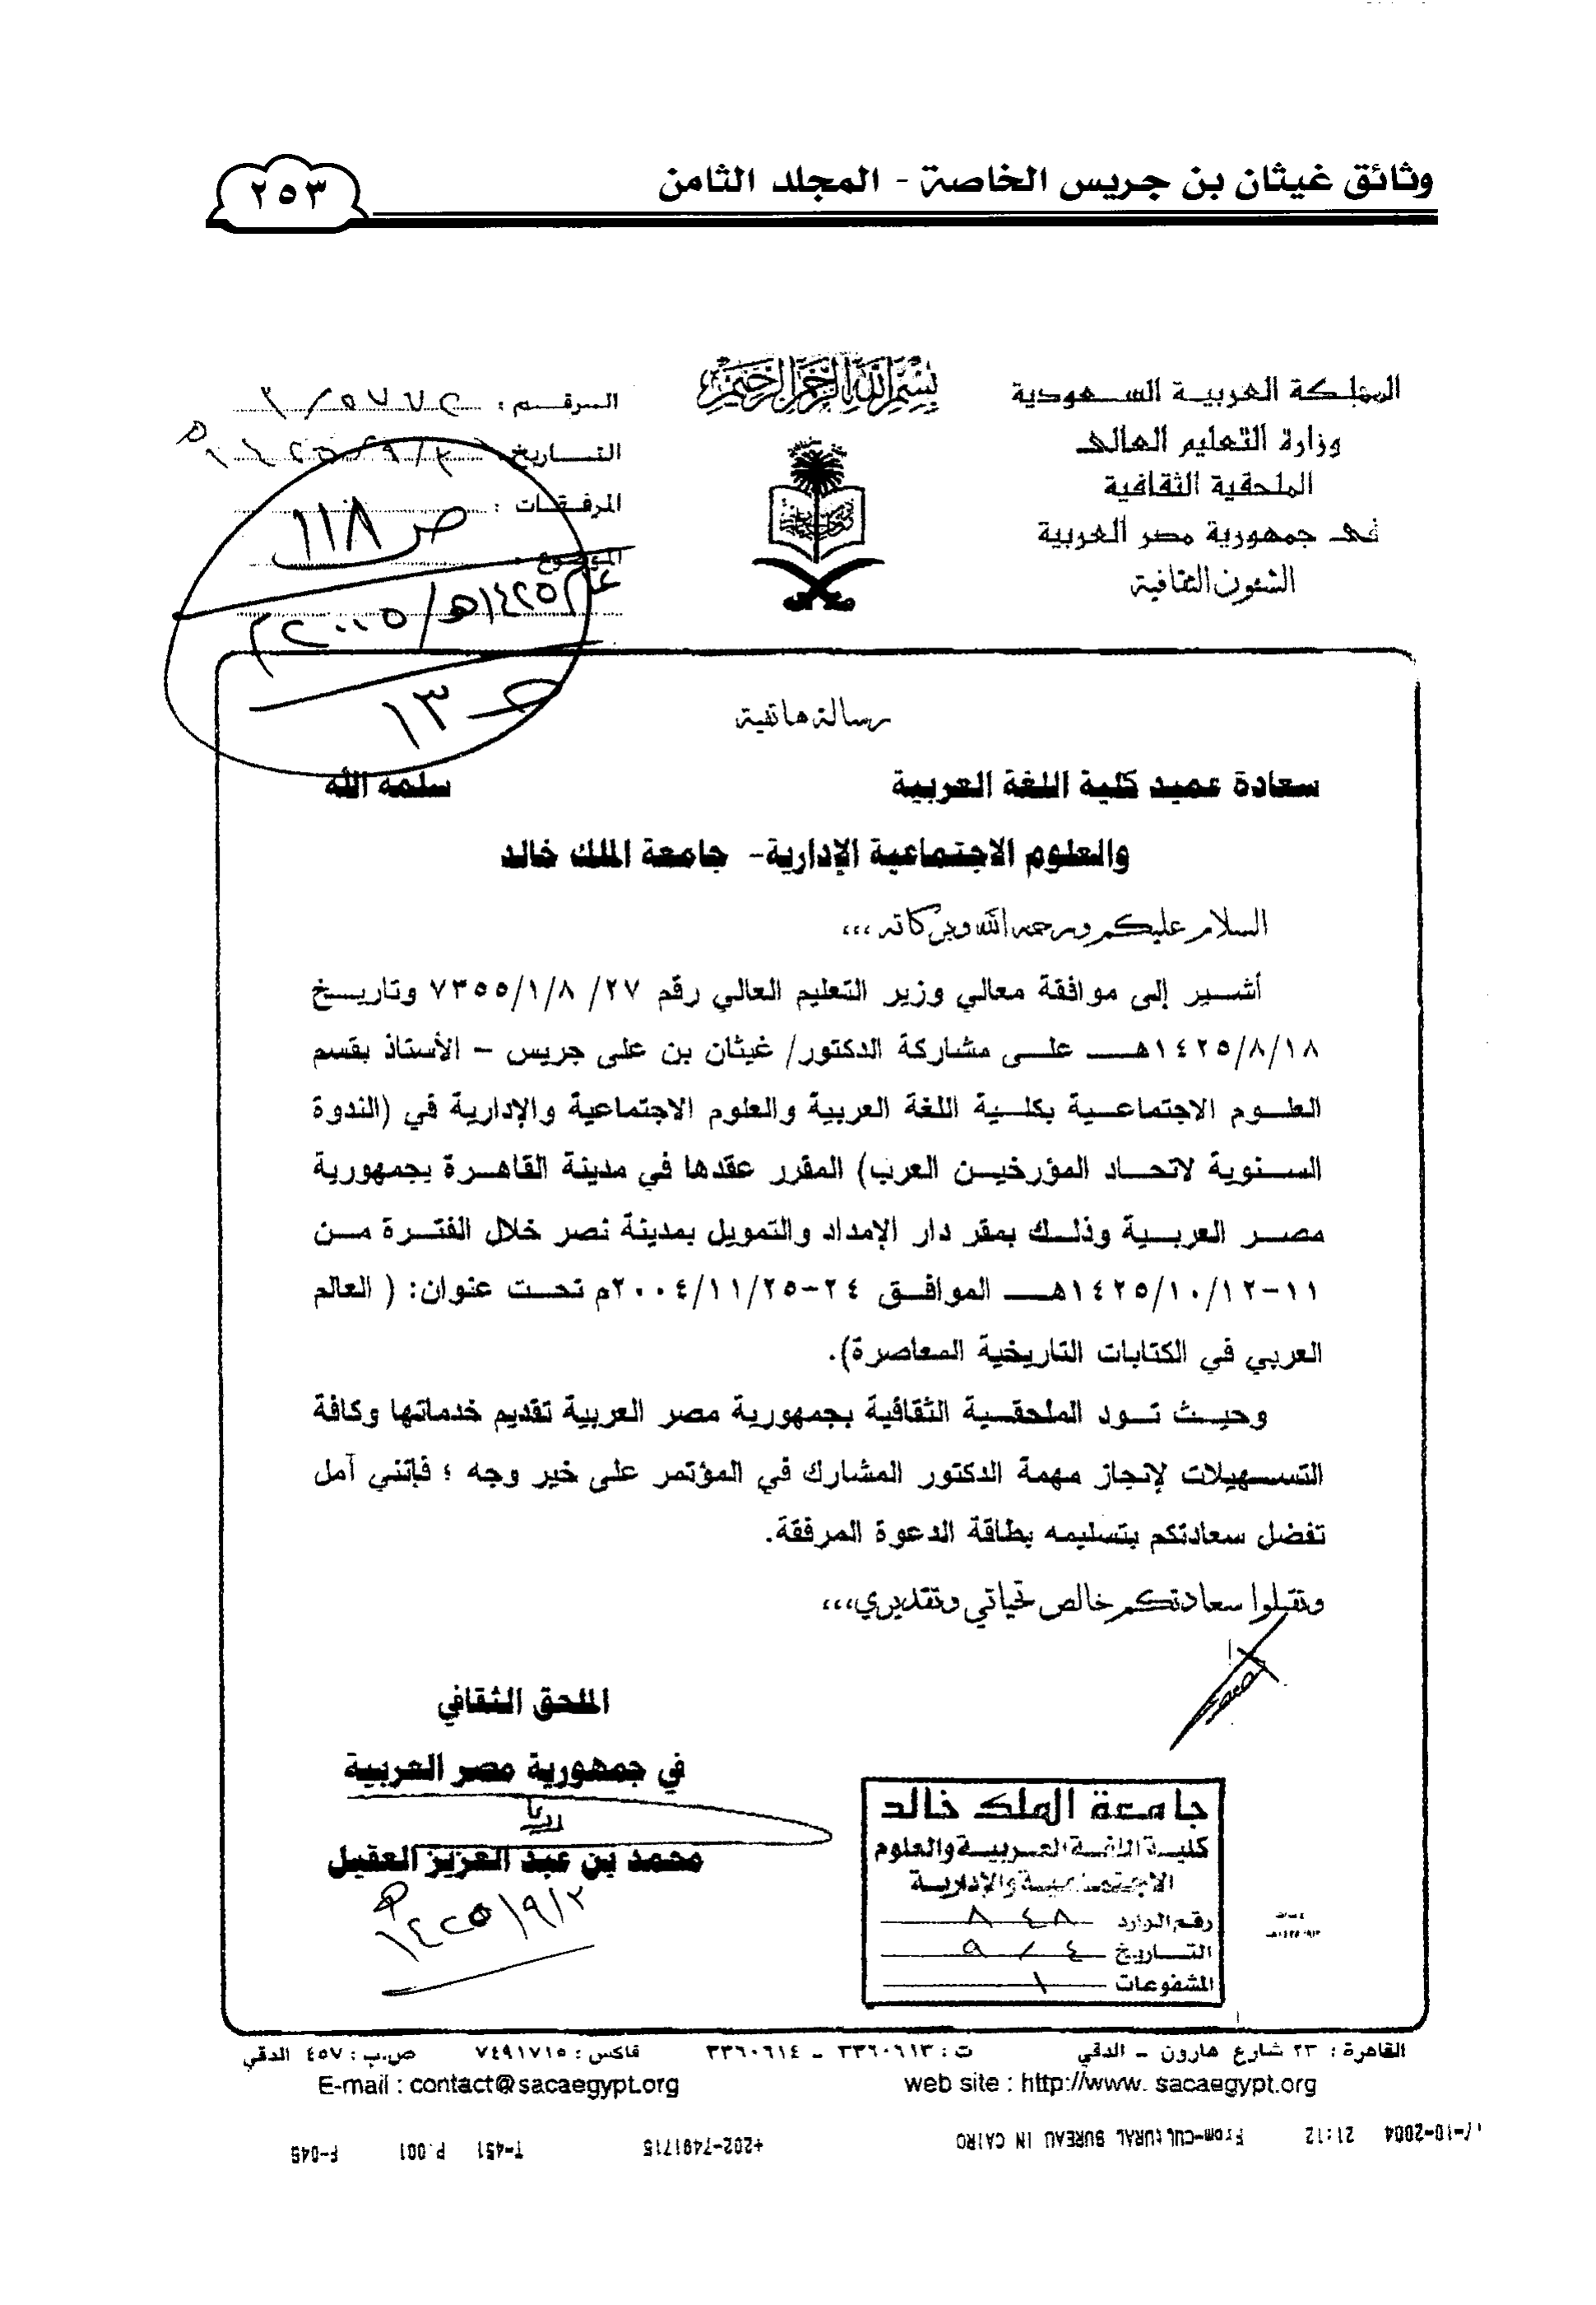 وثائق غيثان بن جريس الخاصة - المجلد الثامن
٢٥٣
بسم الله الرحمن الرحيم
المملكة العربية السعودية
وزارة التعليم العالى
الملحقية الثقافية
فى جمهورية مصر العربية
الشئون الثقافية
الرقم :
التاريخ :
المرفقات :
الموضوع :
ص ١١٨
١٤٢٥هـ/٢٠٠٥م
حـ ١٣
رسالة هاتفية
سعادة عميد كلية اللغة العربية سلمه الله
والعلوم الاجتماعية الإدارية- جامعة الملك خالد
السلام عليكم ورحمة الله وبركاته ،،،
أشير إلى موافقة معالي وزير التعليم العالي رقم ٢٧/ ٧٣٥٥/١/٨ وتاريخ
١٤٢٥/٨/١٨هـ على مشاركة الدكتور/ غيثان بن على جريس – الأستاذ بقسم
العلوم الاجتماعية بكلية اللغة العربية والعلوم الاجتماعية والإدارية في (الندوة
السنوية لاتحاد المؤرخين العرب) المقرر عقدها في مدينة القاهرة بجمهورية
مصر العربية وذلك بمقر دار الإمداد والتمويل بمدينة نصر خلال الفترة من
١١-١٤٢٥/١٠/١٢هـ الموافق ٢٤-٢٠٠٤/١١/٢٥م تحت عنوان: ( العالم
العربي في الكتابات التاريخية المعاصرة).
وحيث تود الملحقية الثقافية بجمهورية مصر العربية تقديم خدماتها وكافة
التسهيلات لإنجاز مهمة الدكتور المشارك في المؤتمر على خير وجه ؛ فإنني آمل
تفضل سعادتكم بتسليمه بطاقة الدعوة المرفقة.
وتقبلوا سعادتكم خالص تحياتي وتقديري،،،
الملحق الثقافي
في جمهورية مصر العربية
محمد بن عبد العزيز العقيل
١٤٢٥/٩/٢هـ
جامعة الملك خالد
كلية اللغة العربية والعلوم
الاجتماعية والإدارية
رقم الوارد ٨٤٨
التاريخ ٤ / ٩
المشفوعات ١
القاهرة : ٢٣ شارع هارون – الدقي ت : ٣٣٦٠٦١٣ – ٣٣٦٠٦١٤ فاكس : ٧٤٩١٧١٥ ص.ب : ٤٥٧ الدقي
web site : http://www. sacaegypt.org E-mail : contact@sacaegypt.org
-10-2004 21:12 From-CULTURAL BUREAU IN CAIRO +202-7491715 T-451 P.001 F-046